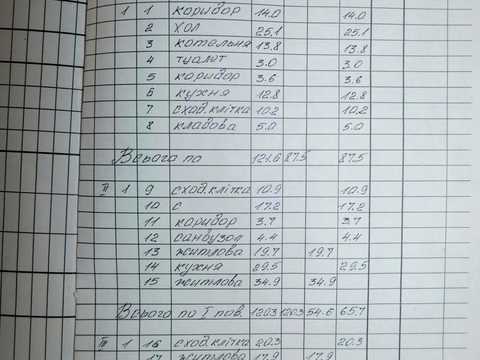 1 1 коридор 14.0 14.0
2 хол 25.1 25.1
3 котельня 13.8 13.8
4 туалет 3.0 3.0
5 коридор 3.6 3.6
6 кухня 12.8 12.8
7 сход.клітка 10.2 10.2
8 кладова 5.0 5.0
Всього по 87.5 87.5
ІІ 1 9 сход.клітка 10.9 10.9
10 с 17.2 17.2
11 коридор 3.7 3.7
12 санвузол 4.4 4.4
13 житлова 19.7 19.7
14 кухня 29.5 29.5
15 житлова 34.9 34.9
Всього по І пов. 120.3 120.3 54.6 65.7
ІІІ 1 16 сход.клітка 20.3 20.3
17 житлова 17.9 17.9